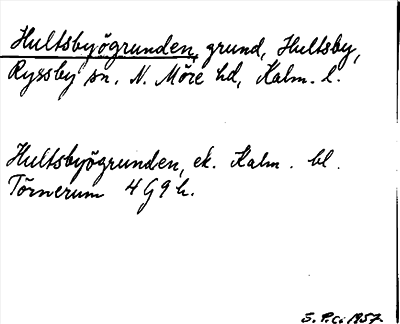 Hultsbyögrunden, grund, Hultsby,
Ryssby sn. N. Möre hd, Kalm. l.
Hultsbyögrunden, ek. Kalm. bl.
Törnerum 4G9h.
S. P:i 1957